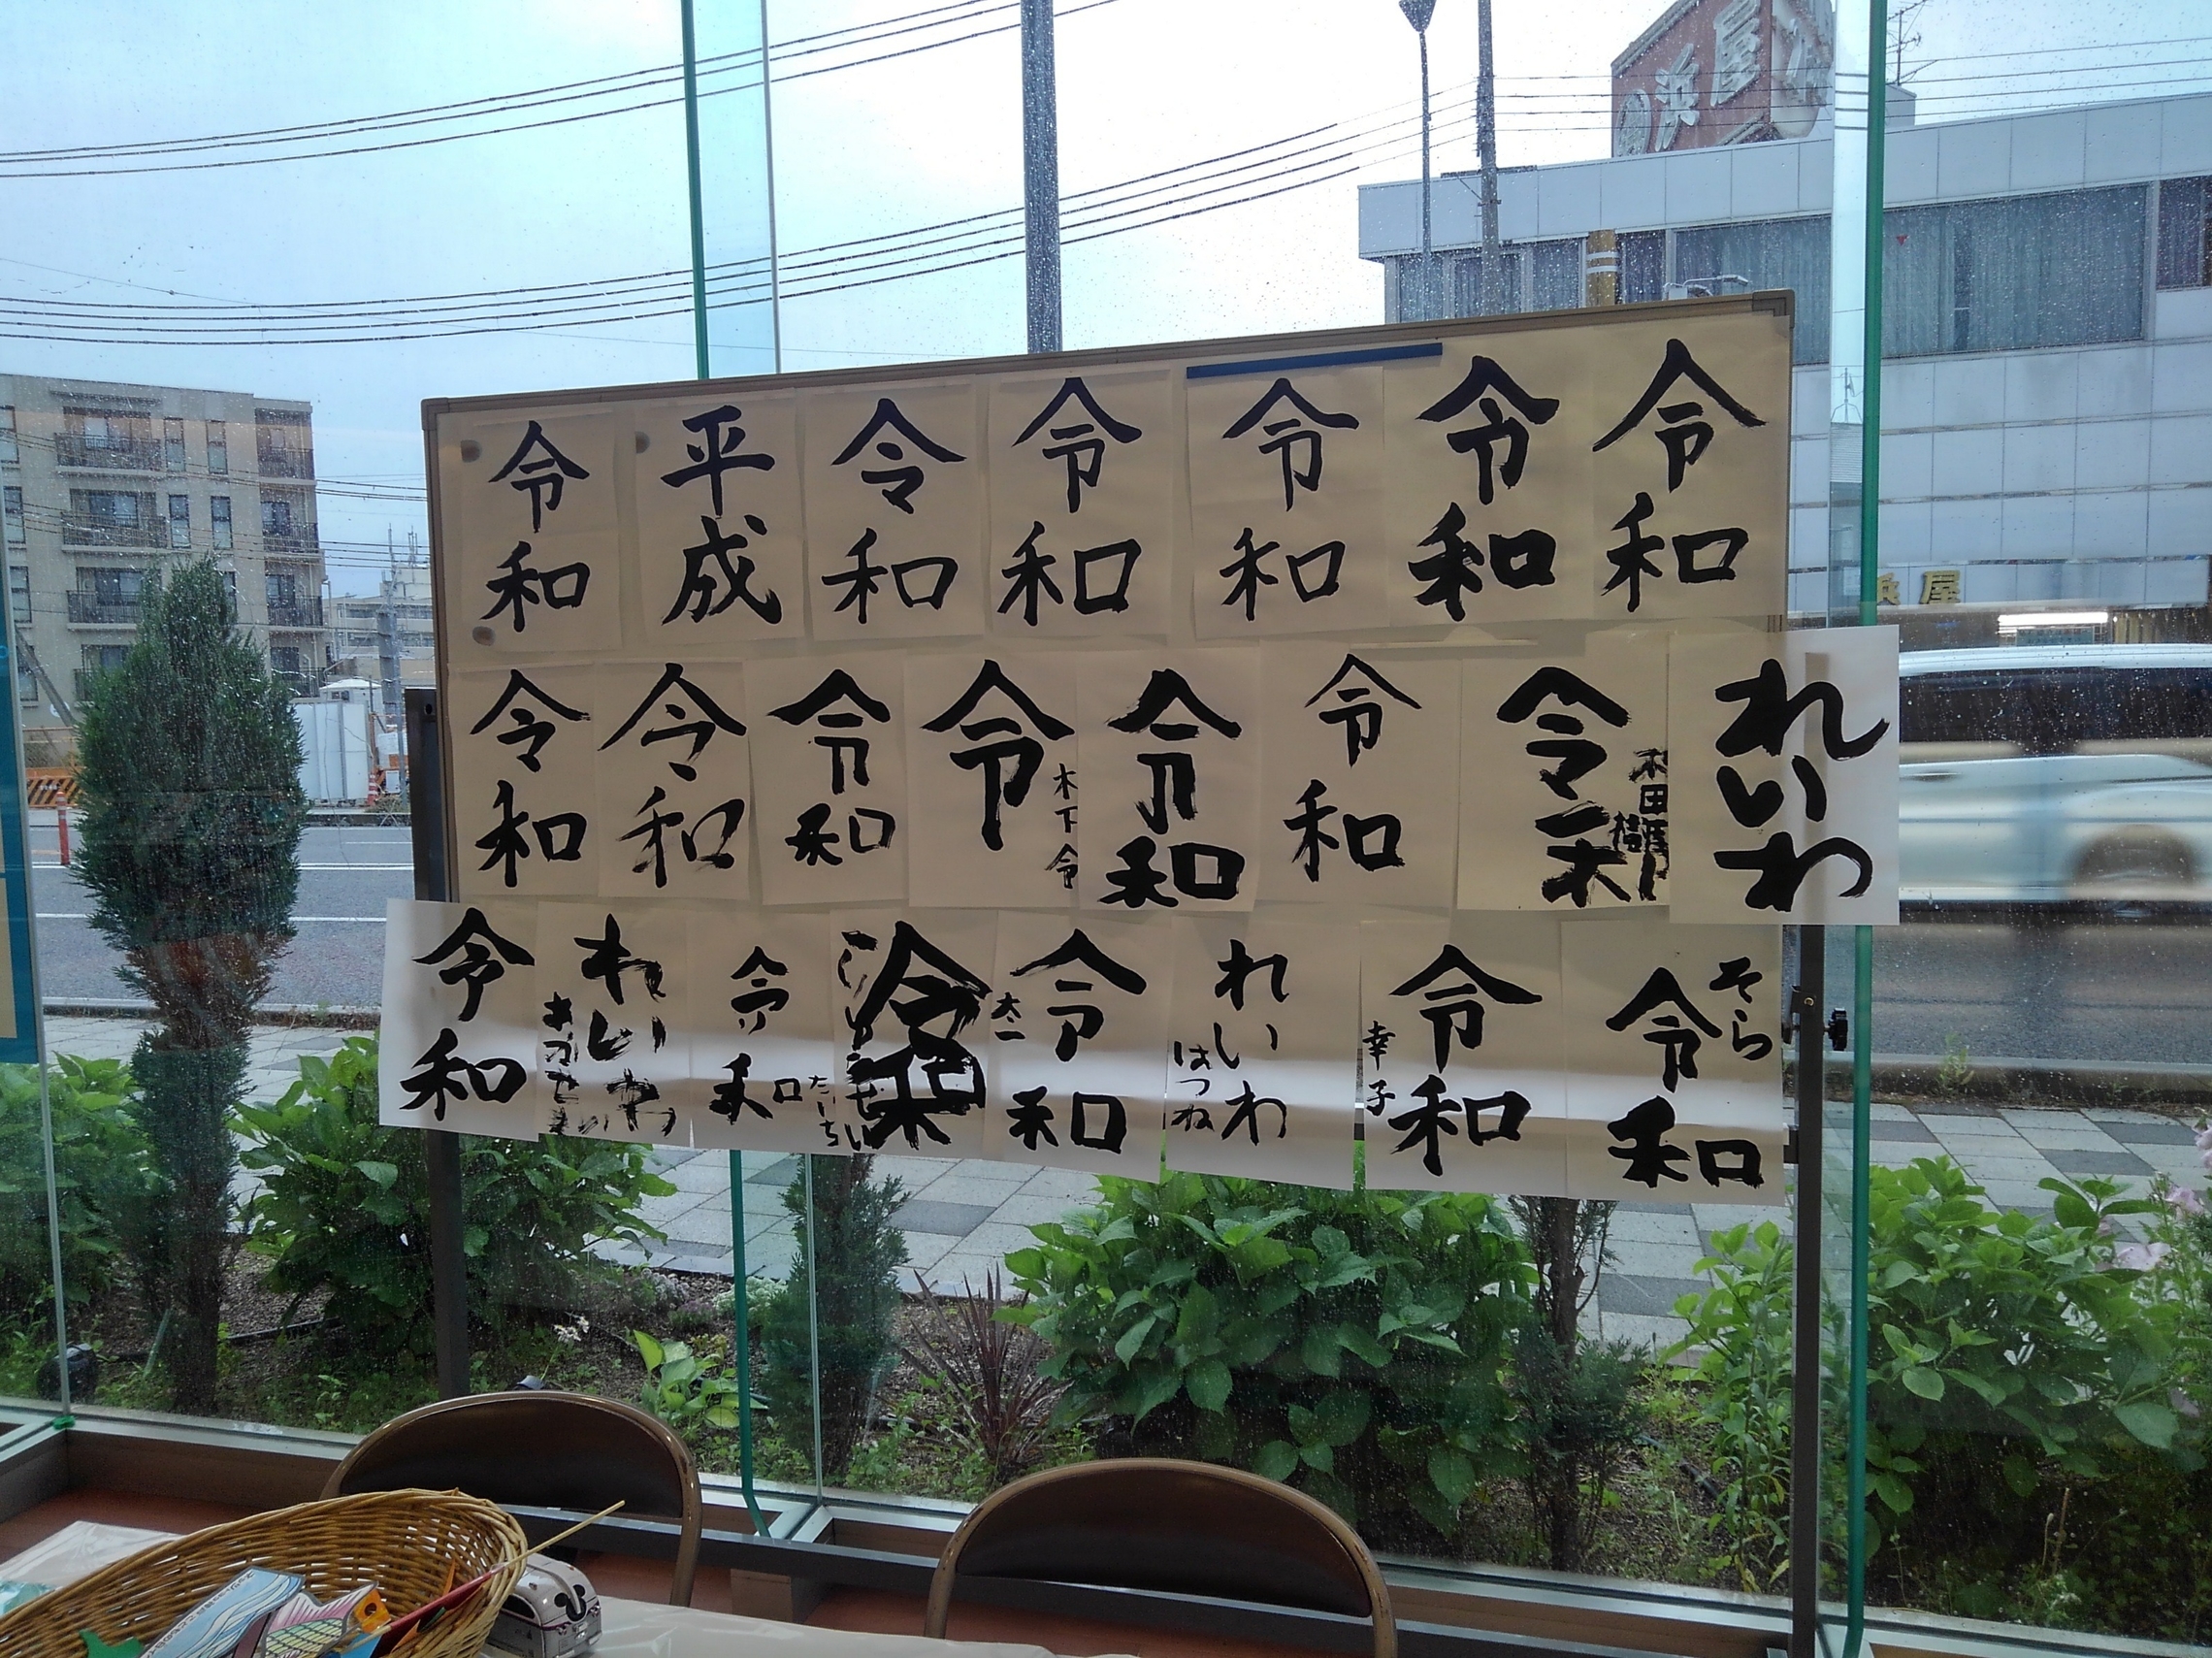 浜屋
浜屋
令和
平成
令和
令和
令和
令和
令和
令和
令和
令和
令
木下令
令和
令和
令和
れいわ
令和
れいわ
令和
たいち
令和
太一
令和
れいわ
はつね
令和
幸子
令和
そら
令和